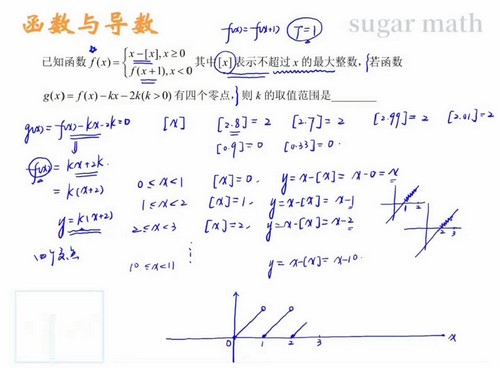 函数与导数
f(x)=f(x+1) T=1
sugar math
已知函数 f(x)={x-[x],x≥0
f(x+1),x<0
其中[x]表示不超过 x 的最大整数，若函数
g(x)=f(x)-kx-2k(k>0)有四个零点，则 k 的取值范围是________
g(x)=f(x)-kx-2k=0 [x] [2.8]=2 [2.7]=2 [2.99]=2 [2.01]=2
[0.9]=0 [0.33]=0.
f(x)=kx+2k.
=k(x+2) 0≤x<1 [x]=0. y=x-[x]=x-0=x
1≤x<2 [x]=1, y=x-[x]=x-1 1 2
y=k(x+2) 2≤x<3 [x]=2, y=x-[x]=x-2 2 3
四个交点
10≤x<11 y=x-[x]=x-10.
0 1 2 3 x